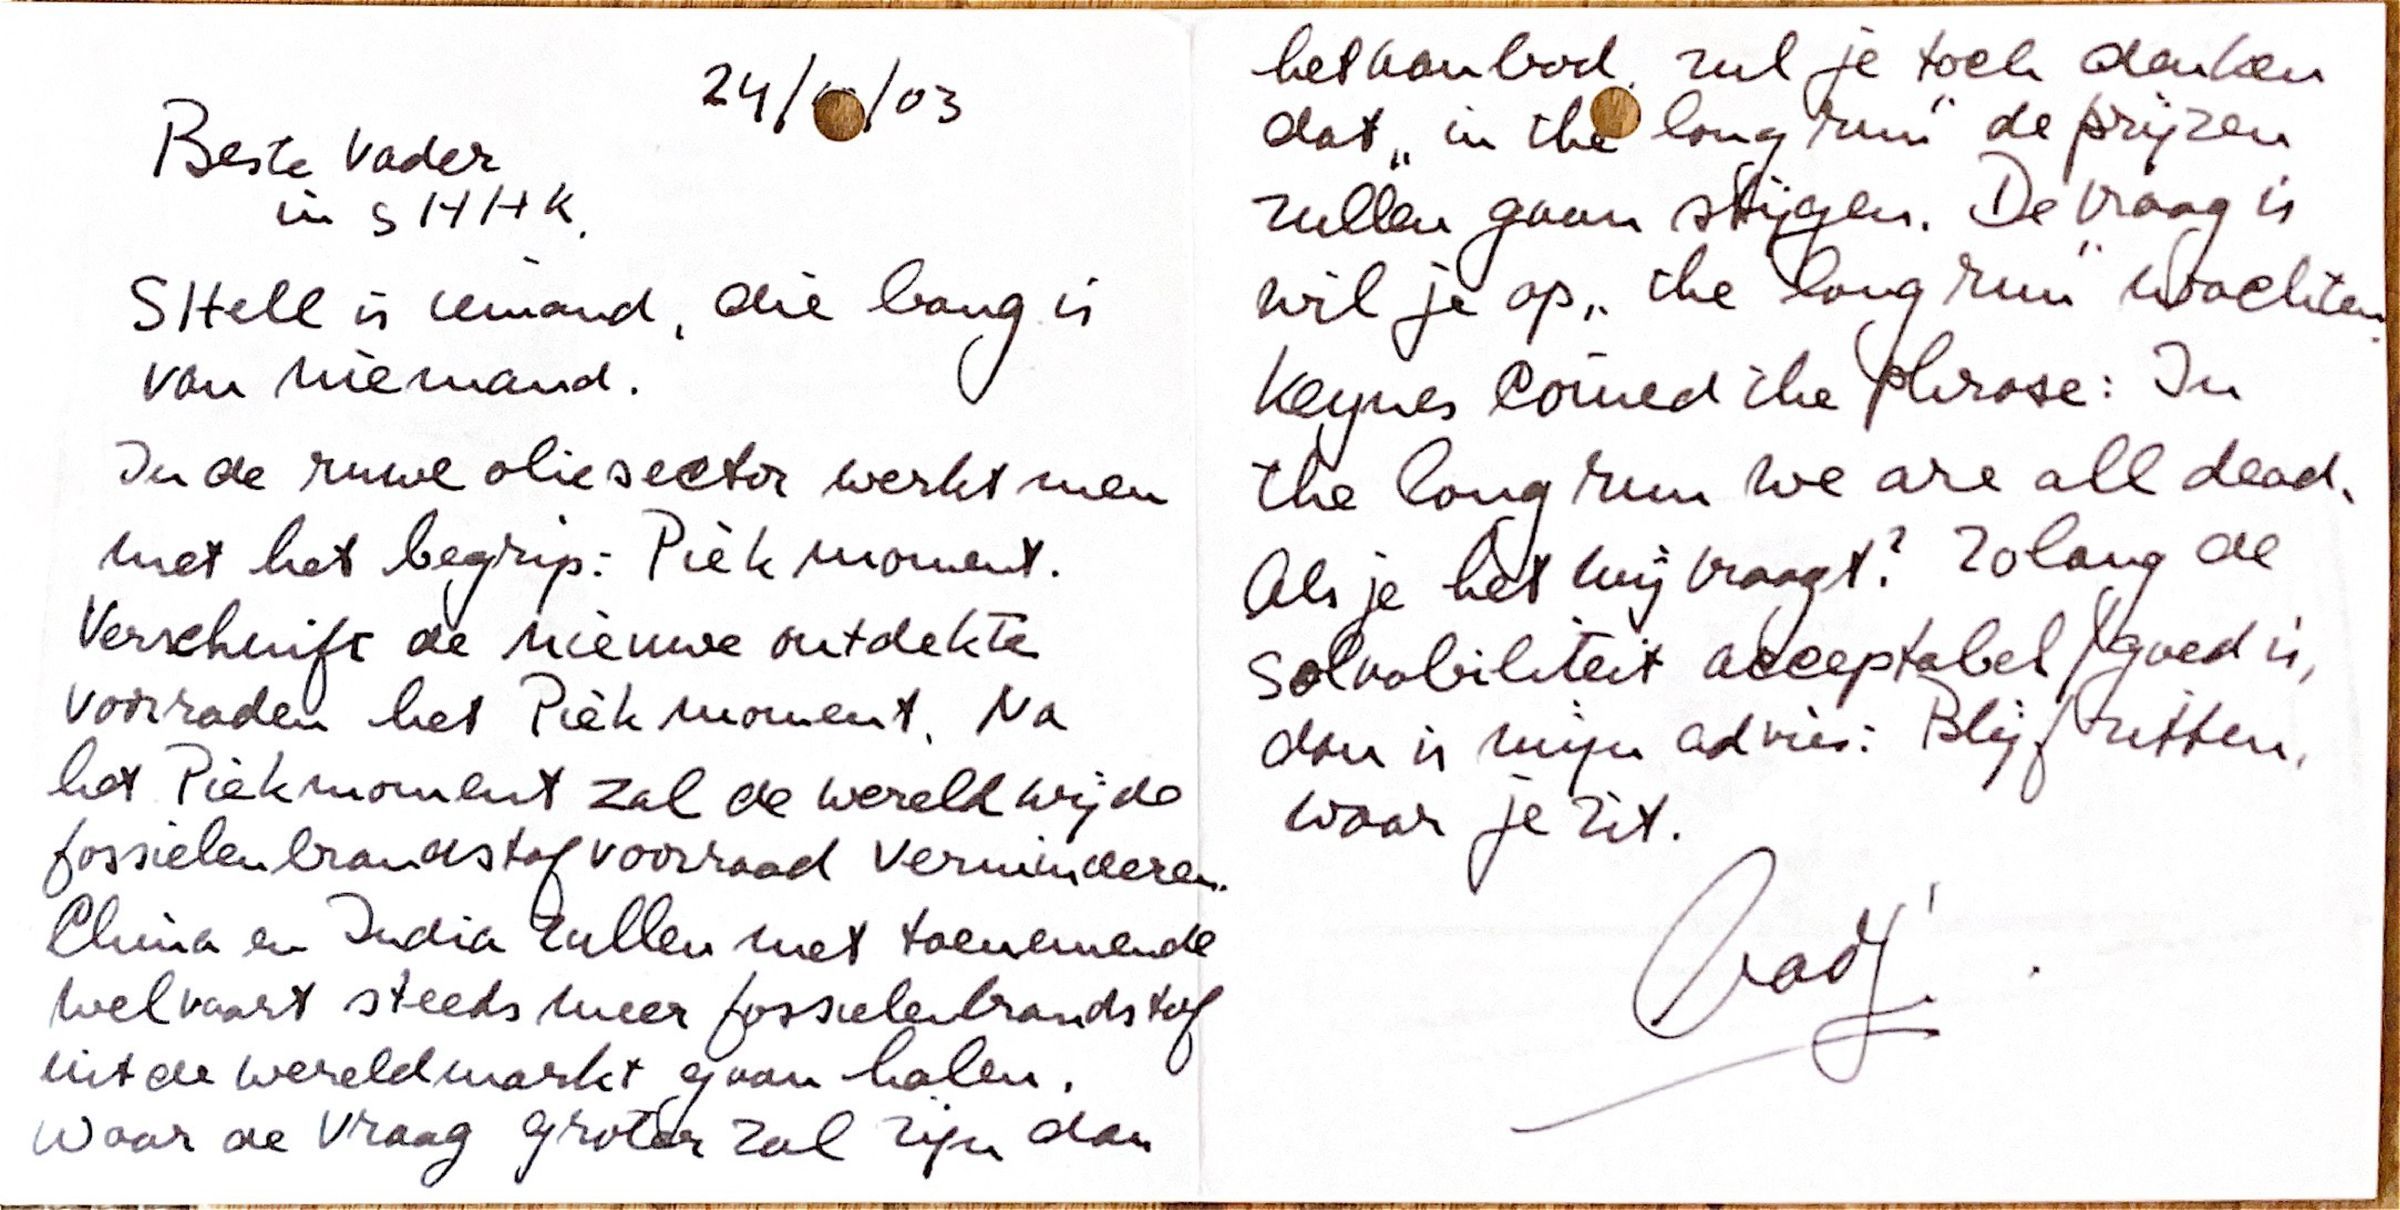 24/ /03
Beste Vader
in SHHK.
SHell is iemand, die bang is
van niemand.
In de ruwe olie sector werkt men
met het begrip: Piek moment.
Verschuift de nieuwe ontdekte
voorraden het Piek moment. Na
het Piekmoment zal de wereld wijde
fossielen brandstof voorraad verminderen.
China en India zullen met toenemende
welvaart steeds meer fossielenbrandstof
uit de wereldmarkt gaan halen.
Waar de vraag groter zal zijn dan
het aanbod. zul je toch denken
dat „in the long run" de prijzen
zullen gaan stijgen. De vraag is
wil je op „the long run" wachten.
Keynes Coined the phrase: In
the long run we are all dead.
Als je het mij vraagt? Zolang de
solvabiliteit acceptabel / goed is,
dan is mijn advies: Blijf zitten,
waar je zit.